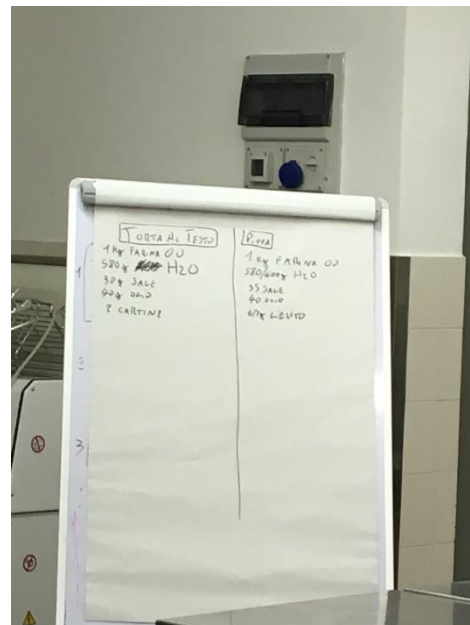 TORTA AL TESTO
1 Kg FARINA 00
580g H2O
40g OLIO
2 CARTINE
PIZZA
1 Kg FARINA 00
580/600g H2O
35 SALE
40 OLIO
LIEVITO
1
2
3